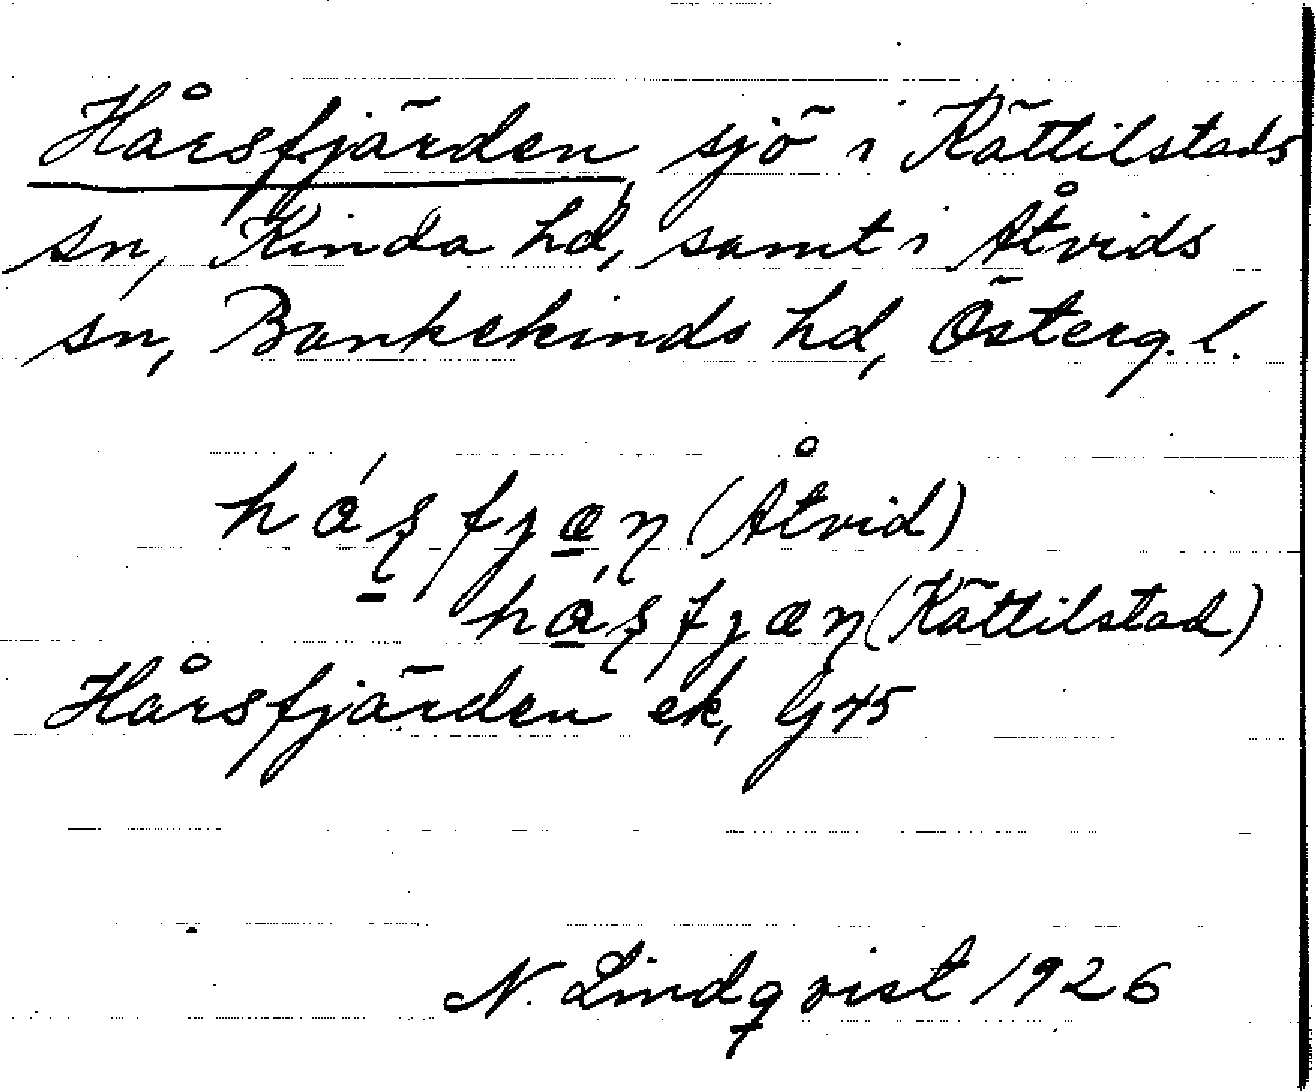 Hårsfjärden sjö i Kättilstads
sn, Kinda hd, samt i Åtvids
sn, Bankekinds hd, Österg. l.
(Åtvid)
(Kättilstad)
Hårsfjärden ek, G 45
N. Lindqvist 1926